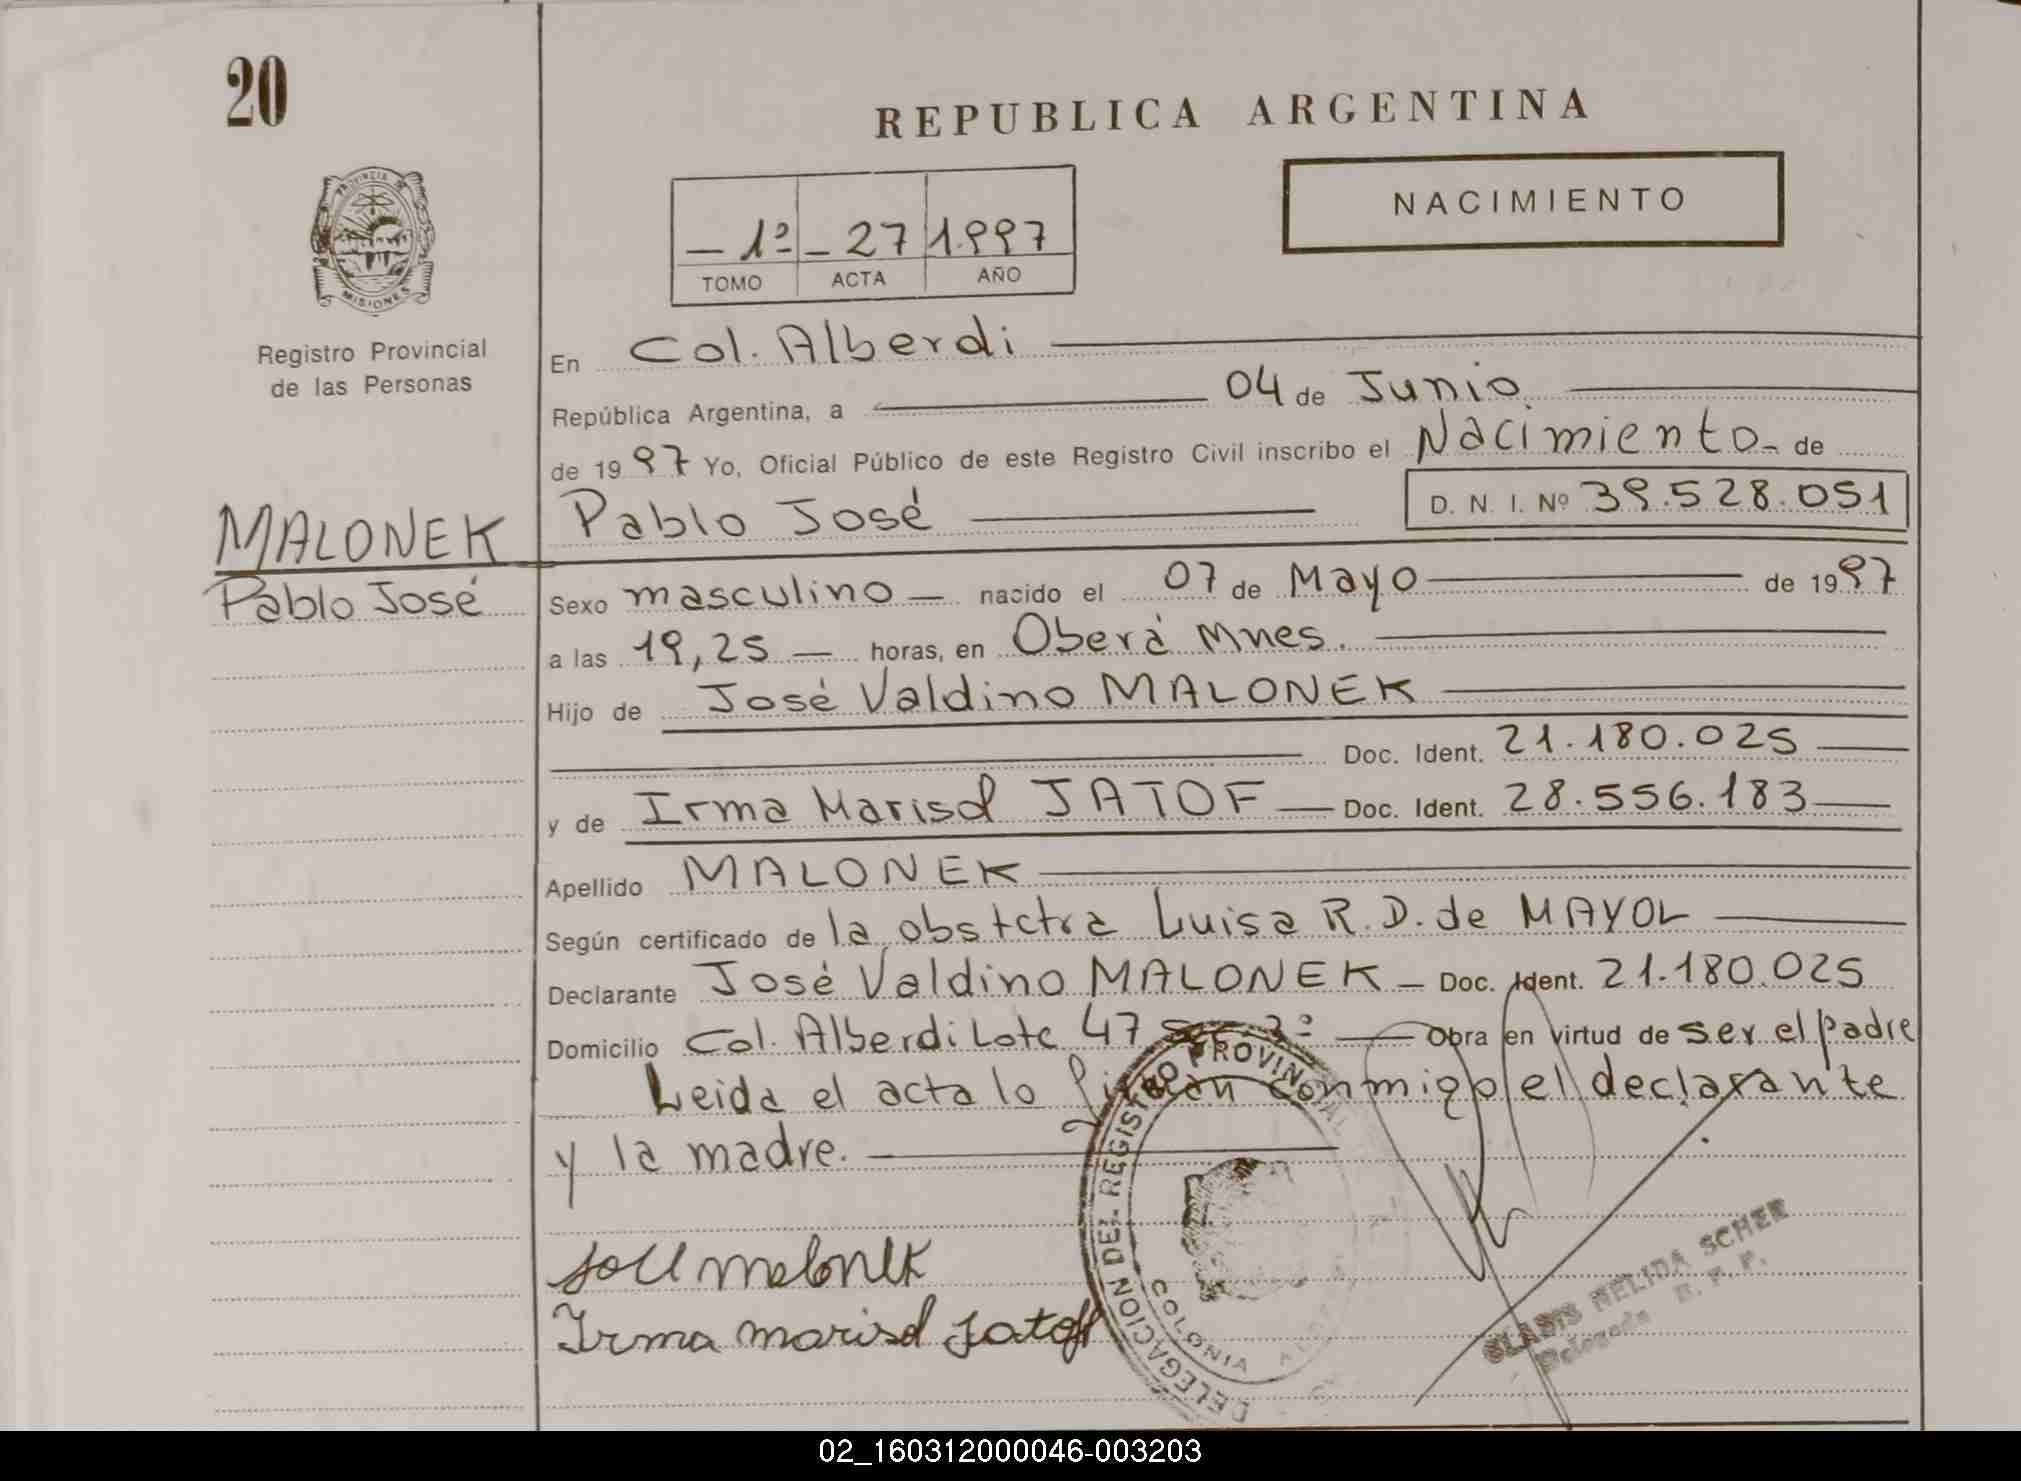 20
REPUBLICA ARGENTINA
PROVINCIA DE
MISIONES
NACIMIENTO
- 1º - 27 1.997
TOMO ACTA AÑO
Registro Provincial
de las Personas
En Col. Alberdi
República Argentina, a 04 de Junio
de 1997 Yo, Oficial Público de este Registro Civil inscribo el Nacimiento - de
MALONEK
Pablo José D. N. I. Nº 39.528.051
Pablo José
Sexo masculino — nacido el 07 de Mayo de 1997
a las 19,25 — horas, en Oberá Mnes.
Hijo de José Valdino MALONEK
Doc. Ident. 21.180.025
y de Irma Marisol JATOF — Doc. Ident. 28.556.183
Apellido MALONEK
Según certificado de la obstctra Luisa R. D. de MAYOL
Declarante José Valdino MALONEK - Doc. Ident. 21.180.025
Domicilio Col. Alberdi Lote 47 sec 3º — Obra en virtud de ser el padre
Leida el acta lo firman conmigo el declarante
y la madre.
DELEGACION DEL REGISTRO PROVINCIAL
COLONIA
José malonek
Irma marisol Jatoff
GLADIS NELIDA SCHER
Delegada R. P. P.
02_160312000046-003203